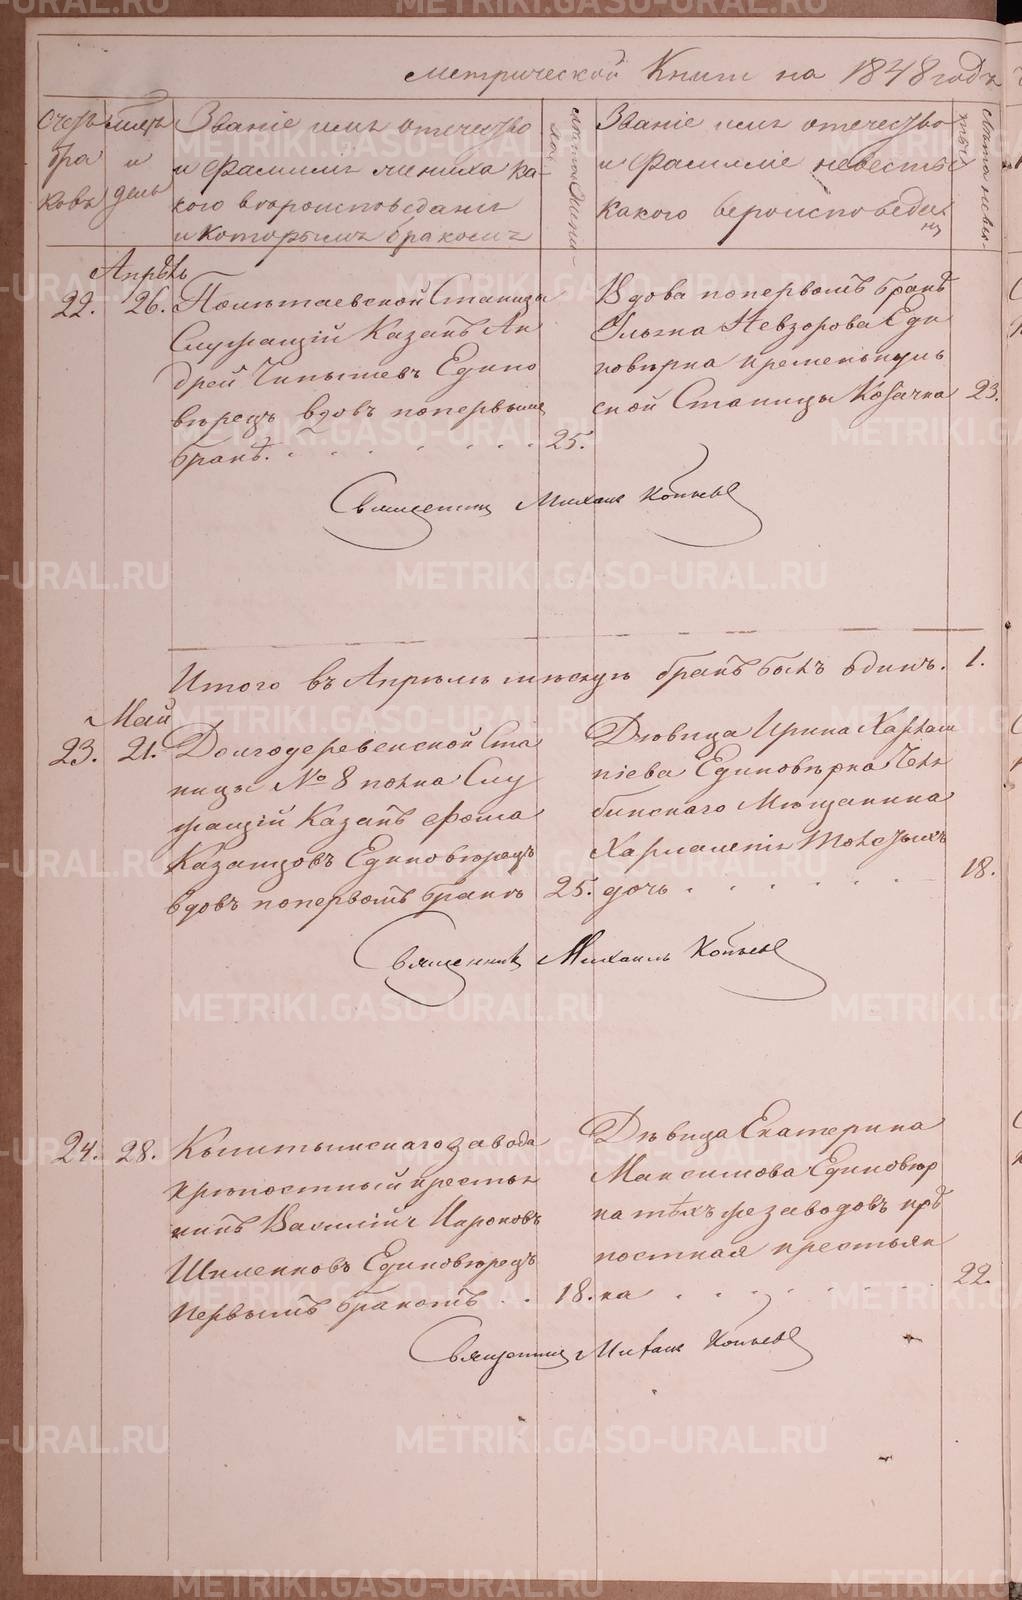 Метрической Книги на 1848 годъ
Счетъ
бра
ковъ
месяцъ
и
день
Званіе имя отечество
и фамилія жениха ка-
кого вероисповеданія
и которымъ бракомъ
лета жени-
ха
Званіе имя отечество
и фамиліе невесты
какого вероисповедан
ія
лета невес-
ты
Апрѣль
22. 26. Полѣтаевской Станицы
Служащій Казакъ Ан
дрей Чипышевъ Едино
вѣрецъ вдовъ попервым
бракѣ. 25.
Вдова попервомъ бракѣ
Ульяна Невзорова Еди
новѣрка кременьkуль
ской Станицы Козачка 23.
Священникъ Михаилъ Копьевъ
Итого въ Апрѣлѣ мѣсяцѣ бракъ былъ одинъ. 1.
Май
23. 21. Долгодеревенской Ста
ницы № 8 полка Слу
жащій Казакъ Фома
Казанцовъ Единовѣрецъ
вдовъ попервомъ бракѣ 25.
Дѣвица Ирина Харлам
піева Единовѣрка Челя
бинскаго Мѣщанина
Харлампія Токарыхъ
дочь 18.
Священникъ Михаилъ Копьевъ
24. 28. Кыштымскаго завода
крѣпостный крестья
нинъ Василій Ивановъ
Шиленковъ Единовѣрецъ
первымъ бракомъ 18.
Дѣвица Екатерина
Максимова Единовѣр
ка тѣхъ же заводовъ крѣ
постная крестьян
ка 22.
Священникъ Михаилъ Копьевъ
METRIKI.GASO-URAL.RU